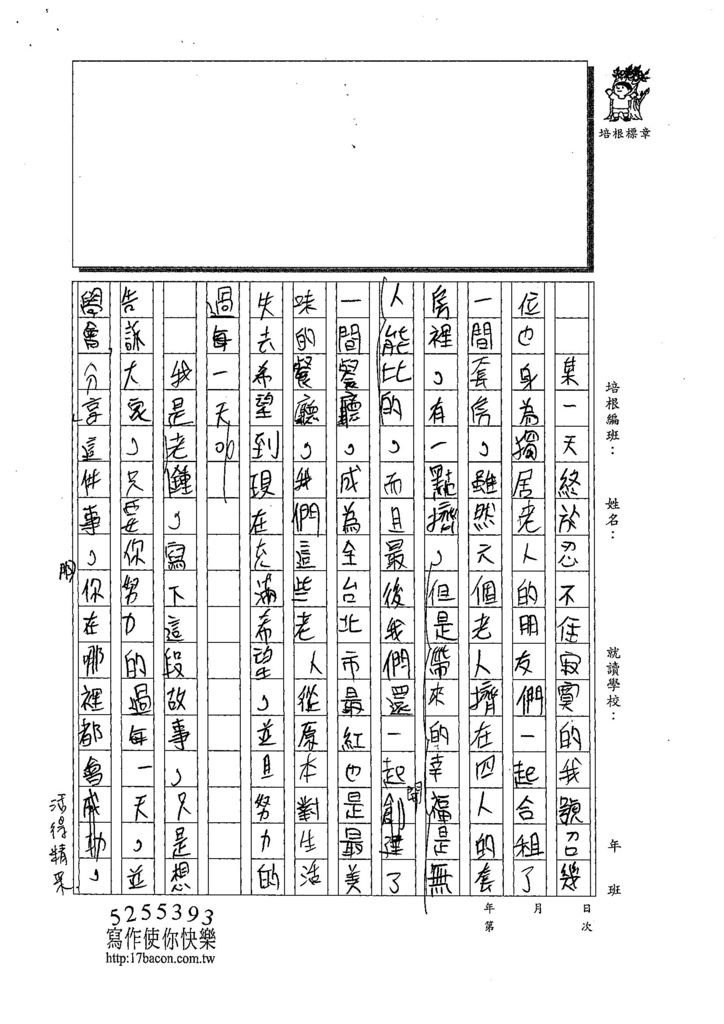 培根標章
培根編班：　姓名：　就讀學校：　年　班
年　月　日
第　次
某一天終於忍不住寂寞的我號召幾
位也身為獨居老人的朋友們一起合租了
一間套房，雖然六個老人擠在四人的套
房裡，有一點擠，但是帶來的幸福是無
人能比的，而且最後我們還一起創建了
開
一間餐廳，成為全台北市最紅也是最美
味的餐廳，我們這些老人從原本對生活
失去希望到現在充滿希望，並且努力的
過每一天。
我是老鍾，寫下這段故事，只是想
告訴大家，只要你努力的過每一天，並
學會分享這件事，你在哪裡都會成功，
活得精采
5255393
寫作使你快樂
http:17bacon.com.tw